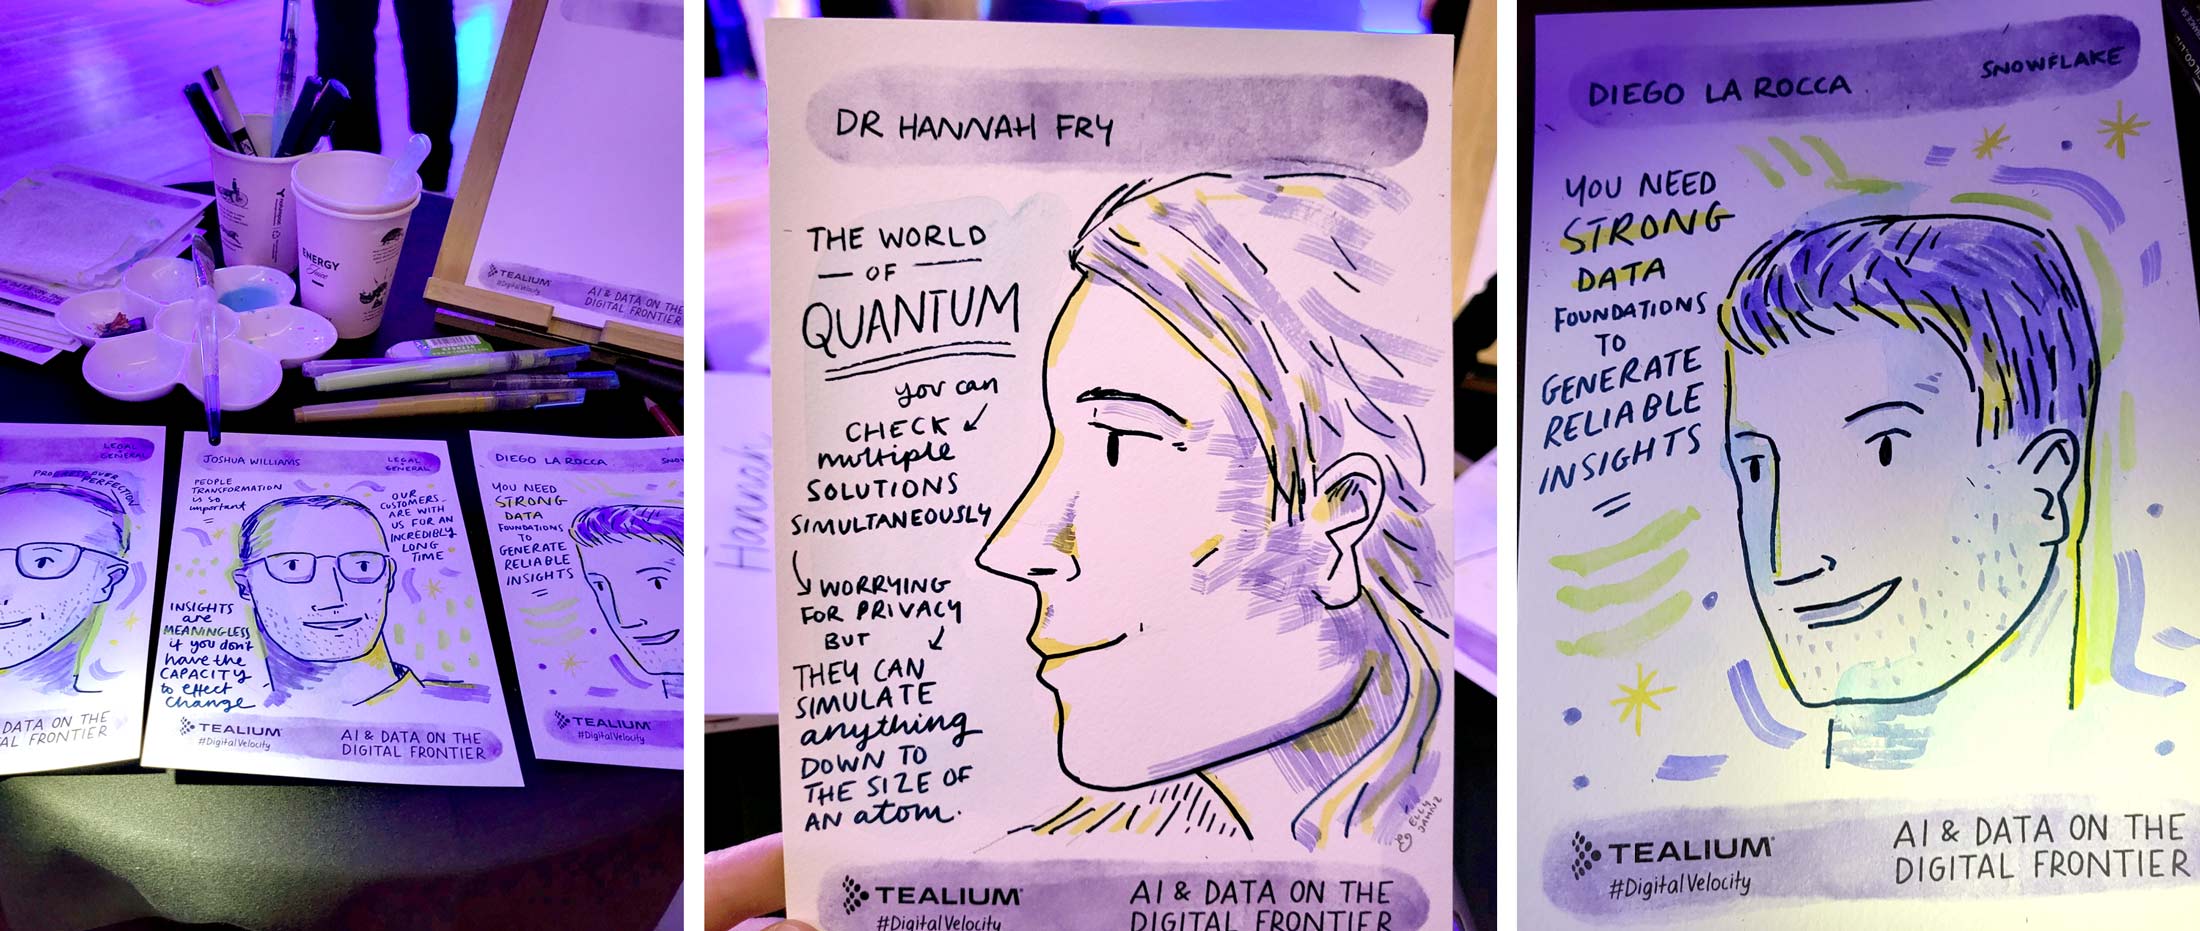 ENERGY
TEALIUM
#DigitalVelocity
AI & DATA ON THE
DIGITAL FRONTIER
LEGAL
&
GENERAL
PROGRESS OVER
PERFECTION
DATA ON THE
AL FRONTIER
JOSHUA WILLIAMS
LEGAL
&
GENERAL
PEOPLE
TRANSFORMATION
IS SO
important
OUR
CUSTOMERS
ARE WITH
US FOR AN
INCREDIBLY
LONG
TIME
INSIGHTS
are
MEANINGLESS
if you don't
have the
CAPACITY
to effect
change
TEALIUM
#DigitalVelocity
AI & DATA ON THE
DIGITAL FRONTIER
DIEGO LA ROCCA
SNO
YOU NEED
STRONG
DATA
FOUNDATIONS
TO
GENERATE
RELIABLE
INSIGHTS
TEALIUM
#DigitalVelocity
Hannah
DR HANNAH FRY
THE WORLD
OF
QUANTUM
you can
CHECK
multiple
SOLUTIONS
SIMULTANEOUSLY
WORRYING
FOR PRIVACY
BUT
THEY CAN
SIMULATE
anything
DOWN TO
THE SIZE OF
AN atom.
ELLY
JAHNZ
TEALIUM
#DigitalVelocity
AI & DATA ON THE
DIGITAL FRONTIER
DIEGO LA ROCCA
SNOWFLAKE
YOU NEED
STRONG
DATA
FOUNDATIONS
TO
GENERATE
RELIABLE
INSIGHTS
TEALIUM
#DigitalVelocity
AI & DATA ON THE
DIGITAL FRONTIER